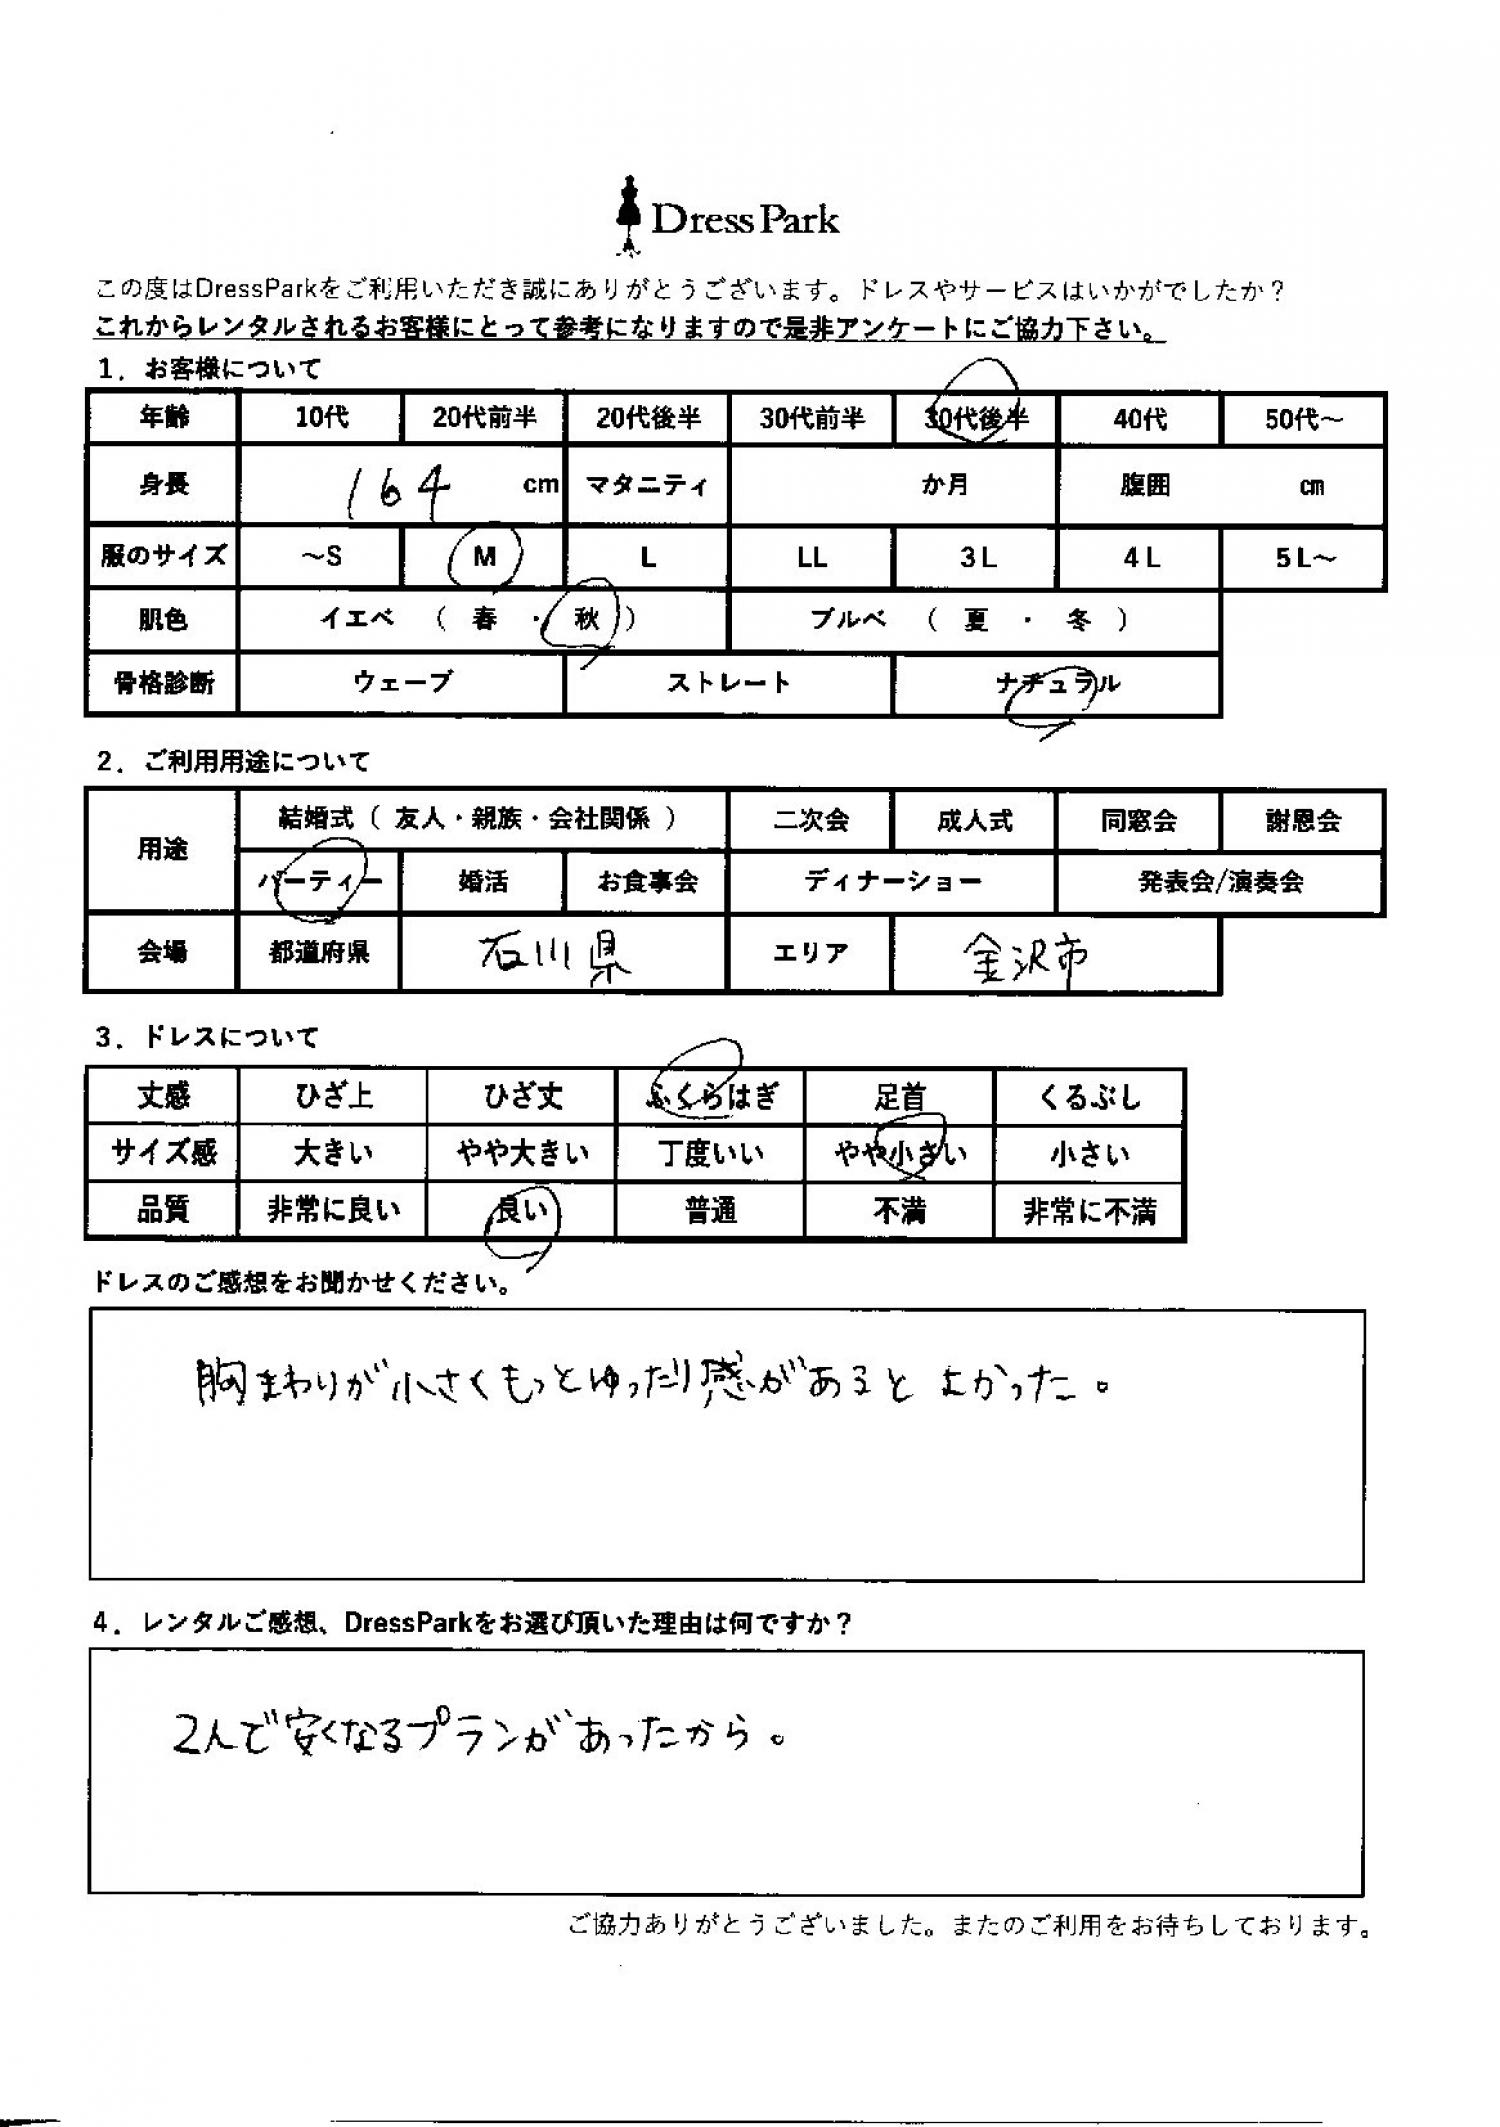 Dress Park
この度はDressParkをご利用いただき誠にありがとうございます。ドレスやサービスはいかがでしたか？
これからレンタルされるお客様にとって参考になりますので是非アンケートにご協力下さい。
1．お客様について
年齢 10代 20代前半 20代後半 30代前半 30代後半 40代 50代～
身長 164 cm マタニティ か月 腹囲 cm
服のサイズ ～S M L LL 3L 4L 5L～
肌色 イエベ （ 春 ・ 秋 ） ブルベ （ 夏 ・ 冬 ）
骨格診断 ウェーブ ストレート ナチュラル
2．ご利用用途について
用途 結婚式（ 友人・親族・会社関係 ） 二次会 成人式 同窓会 謝恩会
パーティー 婚活 お食事会 ディナーショー 発表会/演奏会
会場 都道府県 石川県 エリア 金沢市
3．ドレスについて
丈感 ひざ上 ひざ丈 ふくらはぎ 足首 くるぶし
サイズ感 大きい やや大きい 丁度いい やや小さい 小さい
品質 非常に良い 良い 普通 不満 非常に不満
ドレスのご感想をお聞かせください。
胸まわりが小さくもっとゆったり感があるとよかった。
4．レンタルご感想、DressParkをお選び頂いた理由は何ですか？
2人で安くなるプランがあったから。
ご協力ありがとうございました。またのご利用をお待ちしております。